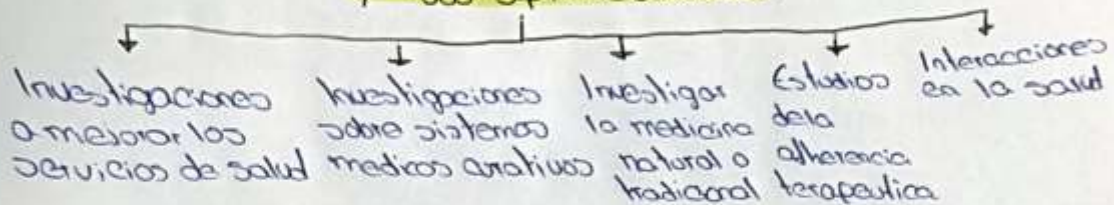 y sus
Investigaciones
a mejorar los
servicios de salud
Investigaciones
sobre sistemas
medicos curativos
Investigar
la medicina
natural o
tradicional
Estudios
de la
adherencia
terapeutica
Interacciones
en la salud